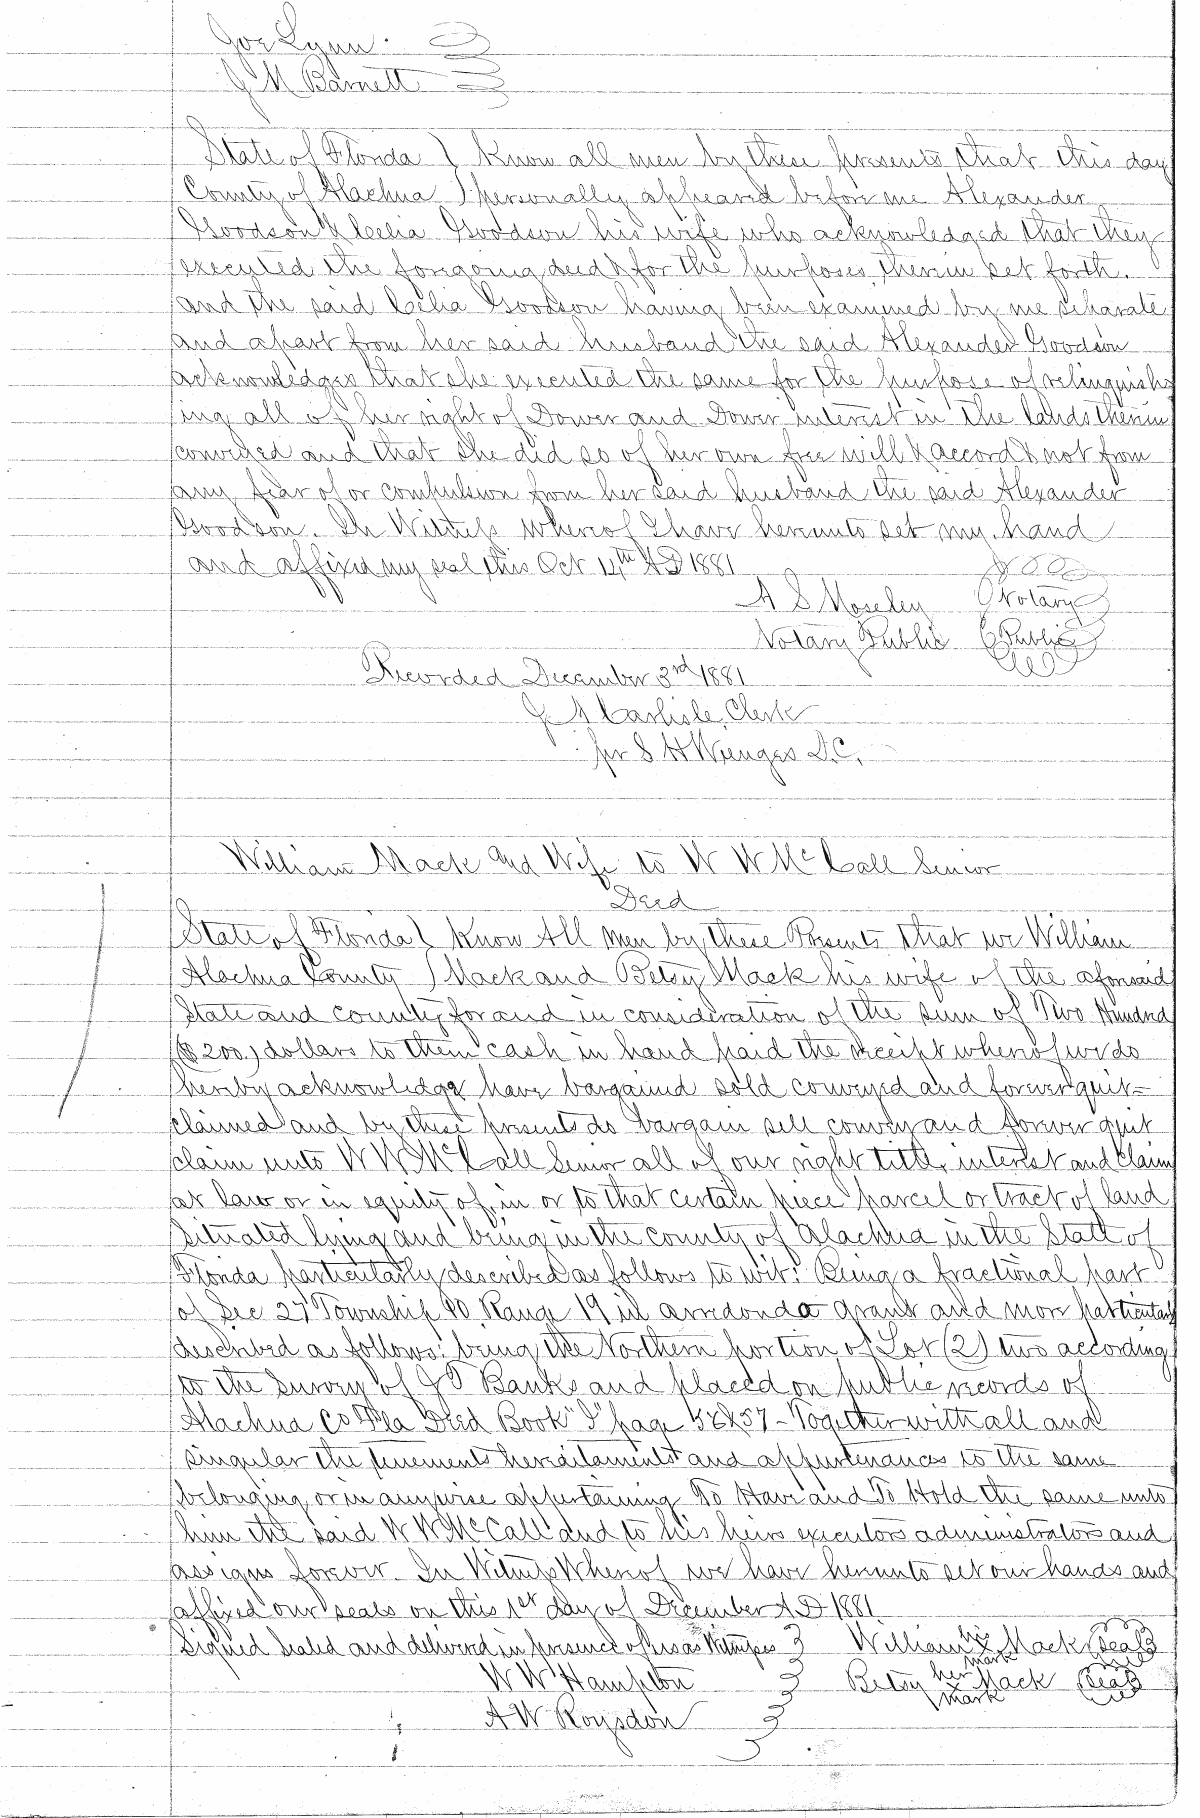 Joe Lynn
J M Barnett
State of Florida } Know all men by these presents that this day
County of Alachua } personally appeared before me Alexander
Goodson & Celia Goodson his wife who acknowledged that they
executed the foregoing deed & for the purposes therein set forth.
and the said Celia Goodson having been examined by me separate
and apart from her said husband the said Alexander Goodson
acknowledges that she executed the same for the purpose of relinquish
ing all of her right of Dower and Dower interest in the lands therein
conveyed and that she did so of her own free will & accord & not from
any fear of or compulsion from her said husband the said Alexander
Goodson. In Witness whereof I have hereunto set my hand
and affixed my seal this Oct 14th AD 1881
A S Moseley Notary
Notary Public Public
Recorded December 3rd 1881
J A Carlisle, Clerk
per S H Wienges D.C.
William Mack and Wife to W W McCall Senior
Deed
State of Florida } Know All Men by these Presents that we William
Alachua County } Mack and Betsy Mack his wife of the aforesaid
State and county, for and in consideration of the sum of Two Hundred
($200.) dollars to them cash in hand paid the receipt whereof we do
hereby acknowledge have bargained sold conveyed and forever quit=
claimed and by these presents do bargain sell convey and forever quit
claim unto W W McCall Senior all of our right title, interest and claim
at law or in equity of, in or to that certain piece parcel or tract of land
situated lying and being in the county of Alachua in the State of
Florida particularly described as follows to wit: Being a fractional part
of Sec 27 Township 10 Range 19 in arredonda grant and more particularly
described as follows: being the Northern portion of Lot (2) two according
to the Survey of J T Banks and placed on public records of
Alachua Co Fla Deed Book "I" page 58 & 57 - Together with all and
singular the tenements hereditaments and appurtenances to the same
belonging or in anywise appertaining To Have and To Hold the same unto
him the said W W McCall and to his heirs executors administrators and
assigns forever. In Witness Whereof we have hereunto set our hands and
affixed our seals on this 1st day of December A D 1881
Signed Sealed and delivered in presence of us as Witnesses William his mark Mack Seal
W W Hampton Betsy her mark Mack Seal
A W Roysdon